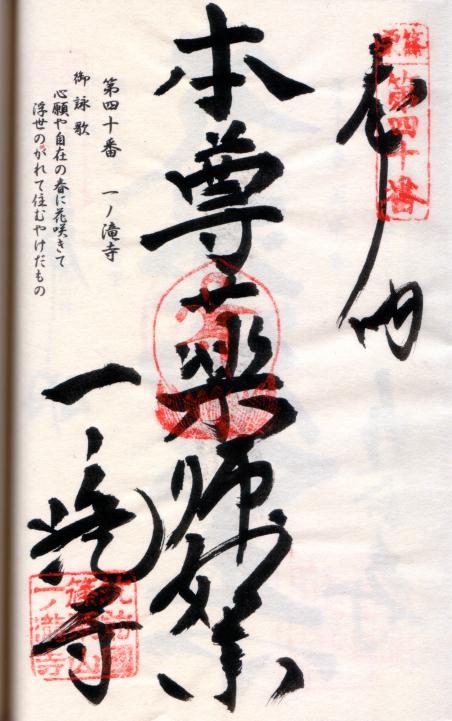 奉納
篠栗
第四十番
本尊薬師如来
第四十番 一ノ滝寺
御詠歌
心願や自在の春に花咲きて
浮世のがれて住むやけだもの
一ノ滝寺
一ノ瀧寺